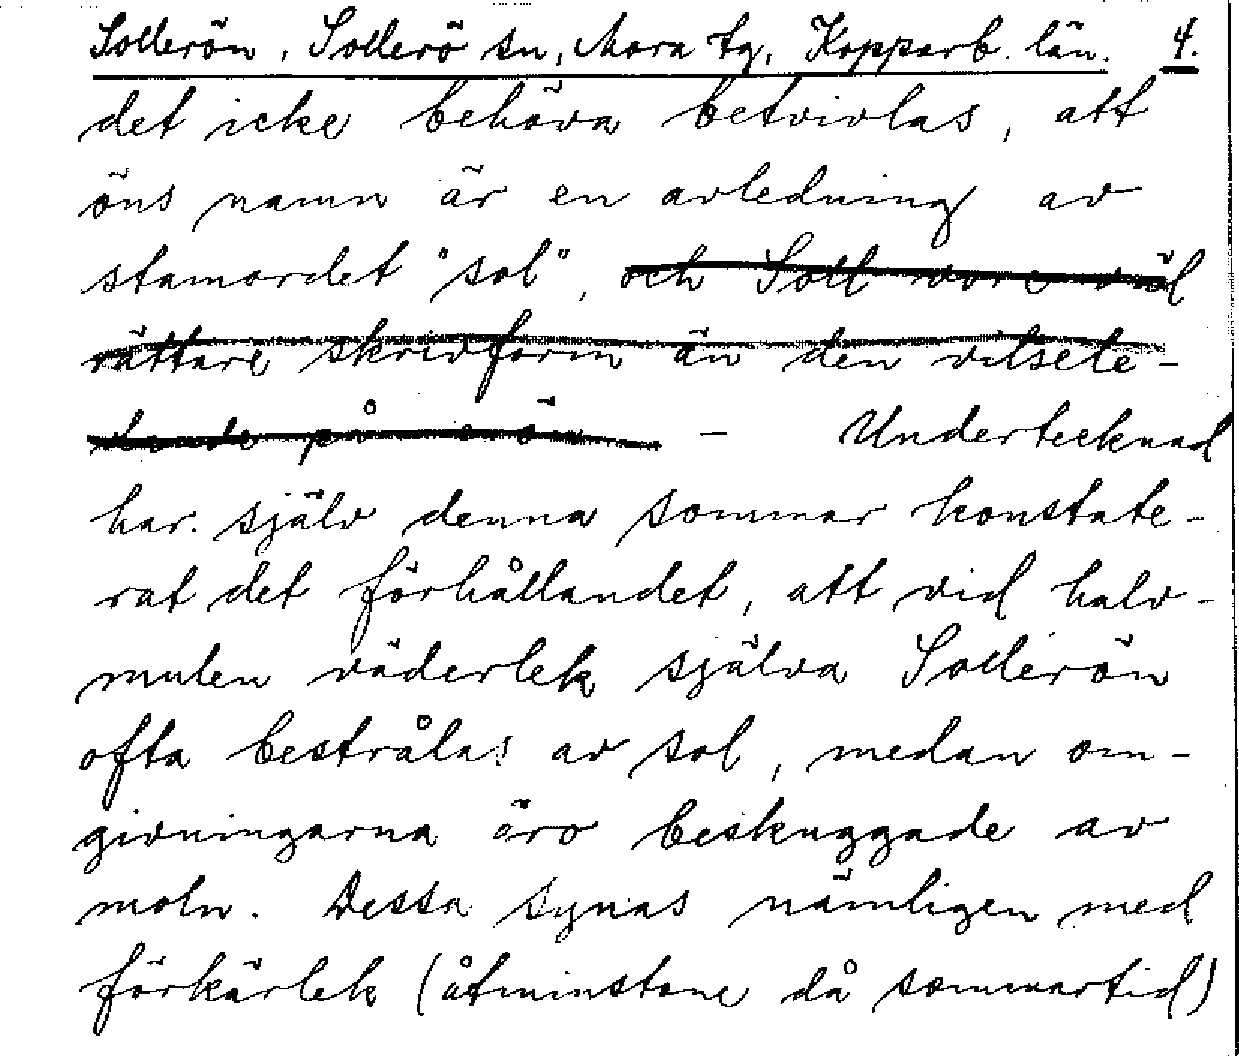 Sollerön, Sollerö sn, Mora tg, Kopparb. län. 4.
det icke behöva betvivlas, att
öns namn är en avledning av
stamordet "sol", och Soll vore väl
rättare skrivform än den vilsele-
dande på erön — Undertecknad
har. själv denna sommar konstate-
rat det förhållandet, att vid halv-
mulen väderlek själva Sollerön
ofta bestrålas av sol, medan om-
givningarna äro beskuggade av
moln. Dessa synas nämligen med
förkärlek (åtminstone då sommartid)